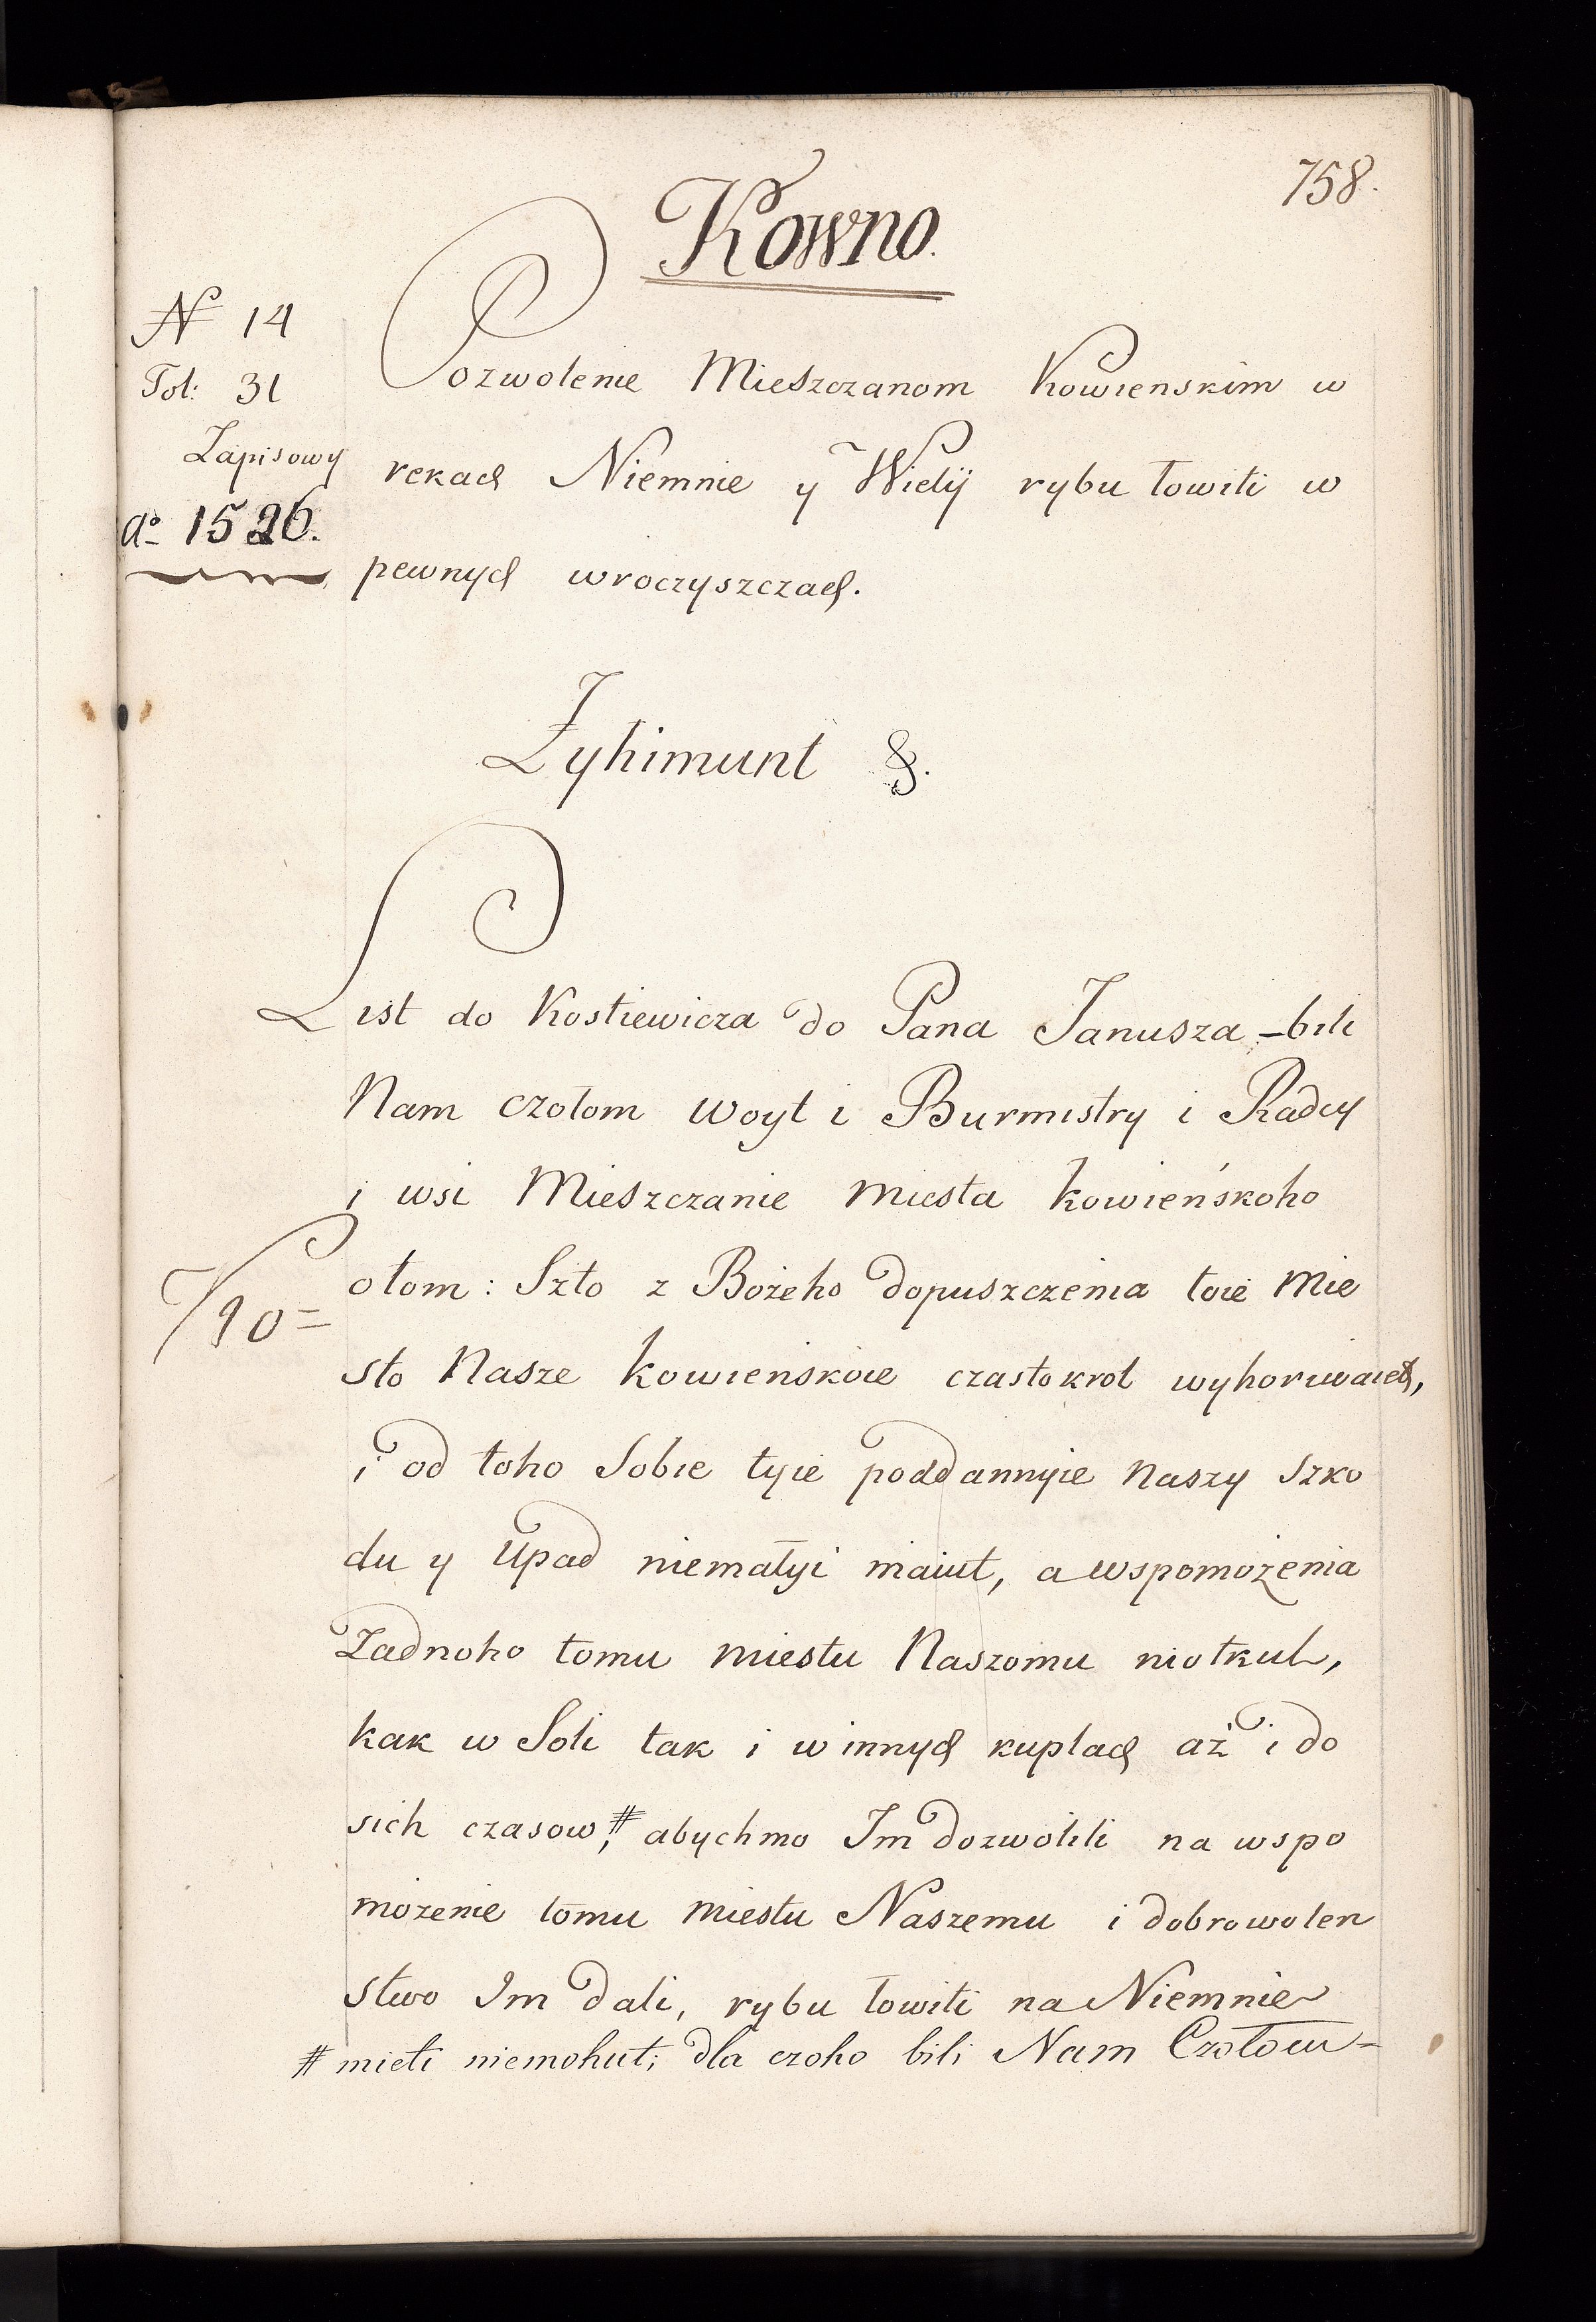 758.
Kowno.
№ 14
Fol: 31
Zapisowy
a° 1526.
Pozwolenie Mieszczanom Kowienskim w
rekach Niemnie y Wielij rybu łowiti w
pewnych wroczyszczach.
Żyhimunt &.
List do Kostiewicza do Pana Janusza – bili
Nam czołom woyt i Burmistry i Radcy
i wsi Mieszczanie miesta kowieńskoho
otom: Szto z Bożeho dopuszczenia toie Mie
sto Nasze kowienskoie czastokrot wyhoriwaiet,
i od toho Sobie tyie poddannyie Naszy Szko
du y Upad niemałyi maiut, a wspomożenia
Żadnoho tomu miestu Naszomu niotkul,
kak w Soli tak i w innych kuplach aż i do
sich czasow,# abychmo Im dozwolili na wspo
możenie tomu miestu Naszemu i dobrowolen
stwo Im dali, rybu łowiti na Niemnie
# mieti niemohut; dla czoho bili Nam Czołom –